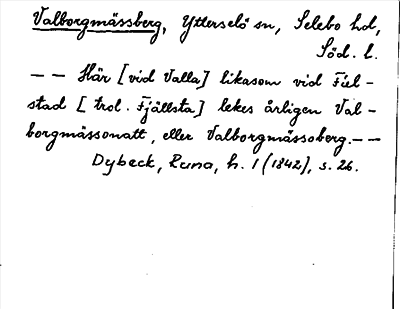 Valborgmässberg, Ytterselö sn, Selebo hd,
Söd. l.
— — Här [vid Valla] likasom vid Fiel-
stad [trol. Fjällsta] lekes årligen Val-
borgmässonatt, eller Valborgmässoberg. — —
Dybeck, Runa, h. 1 (1842), s. 26.